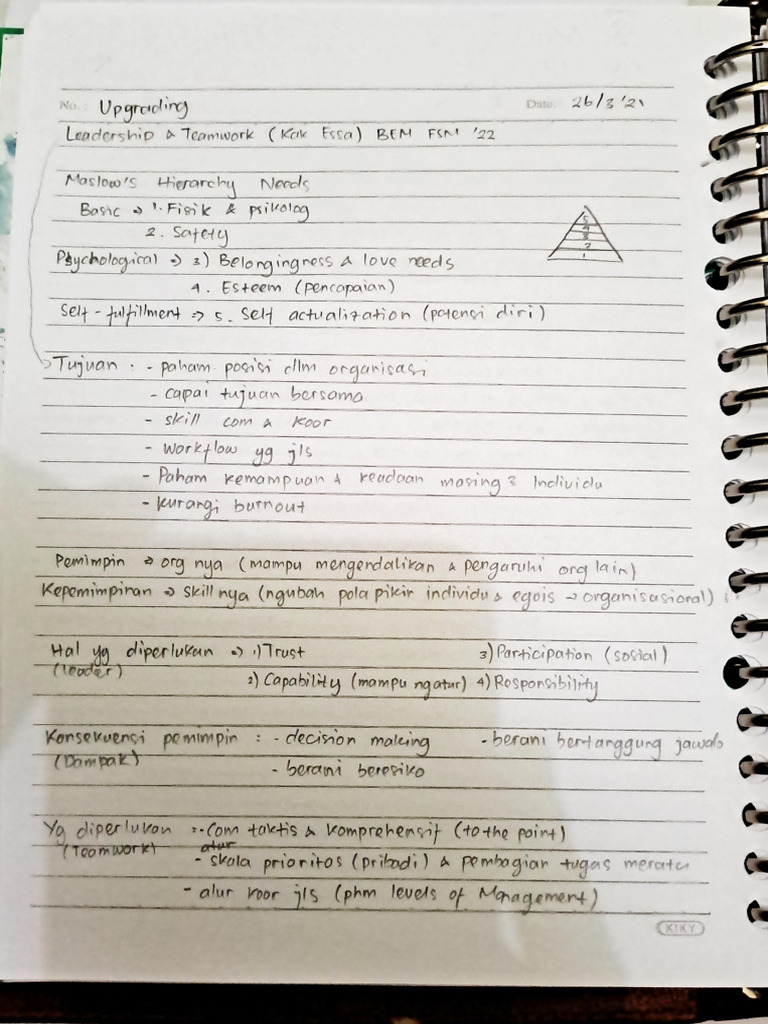 No. : Upgrading Date. : 26/3 '21
Leadership & Teamwork (Kak Essa) BEM FSM '22
Maslow's Hierarchy Needs
Basic → 1. Fisik & psikolog
2. Safety
Psychological → 3) Belongingness & love needs
4. Esteem (pencapaian)
Self-fulfillment → 5. Self actualization (potensi diri)
5
4
3
2
1
Tujuan : - paham posisi dlm organisasi
- capai tujuan bersama
- skill com & koor
- workflow yg jls
- Paham kemampuan & keadaan masing2 Individu
- kurangi burnout
Pemimpin → org nya (mampu mengendalikan & pengaruhi org lain)
Kepemimpinan → skill nya (ngubah pola pikir individu & egois → organisasional)
Hal yg diperlukan → 1) Trust 3) Participation (sosial)
(leader) 2) Capability (mampu ngatur) 4) Responsibility
Konsekuensi pemimpin : - decision making - berani bertanggung jawab
(Dampak) - berani beresiko
Yg diperlukan : - Com taktis & komprehensif (to the point)
(Teamwork) - atur skala prioritas (pribadi) & pembagian tugas merata
- alur koor jls (phm levels of Management)
KIKY